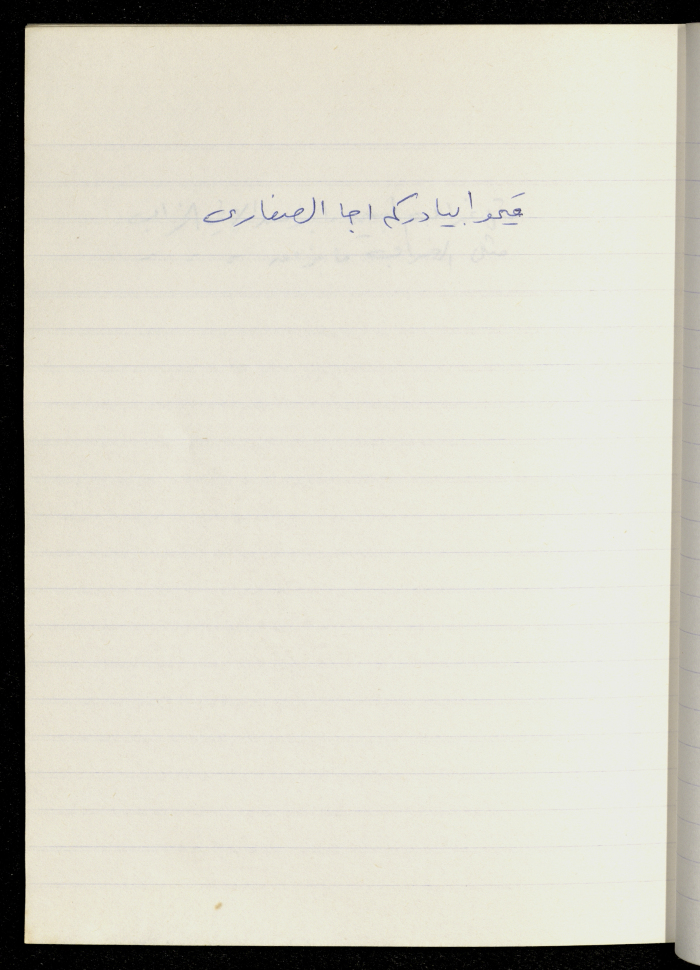 قيموا بيادركم اجا الصفارى